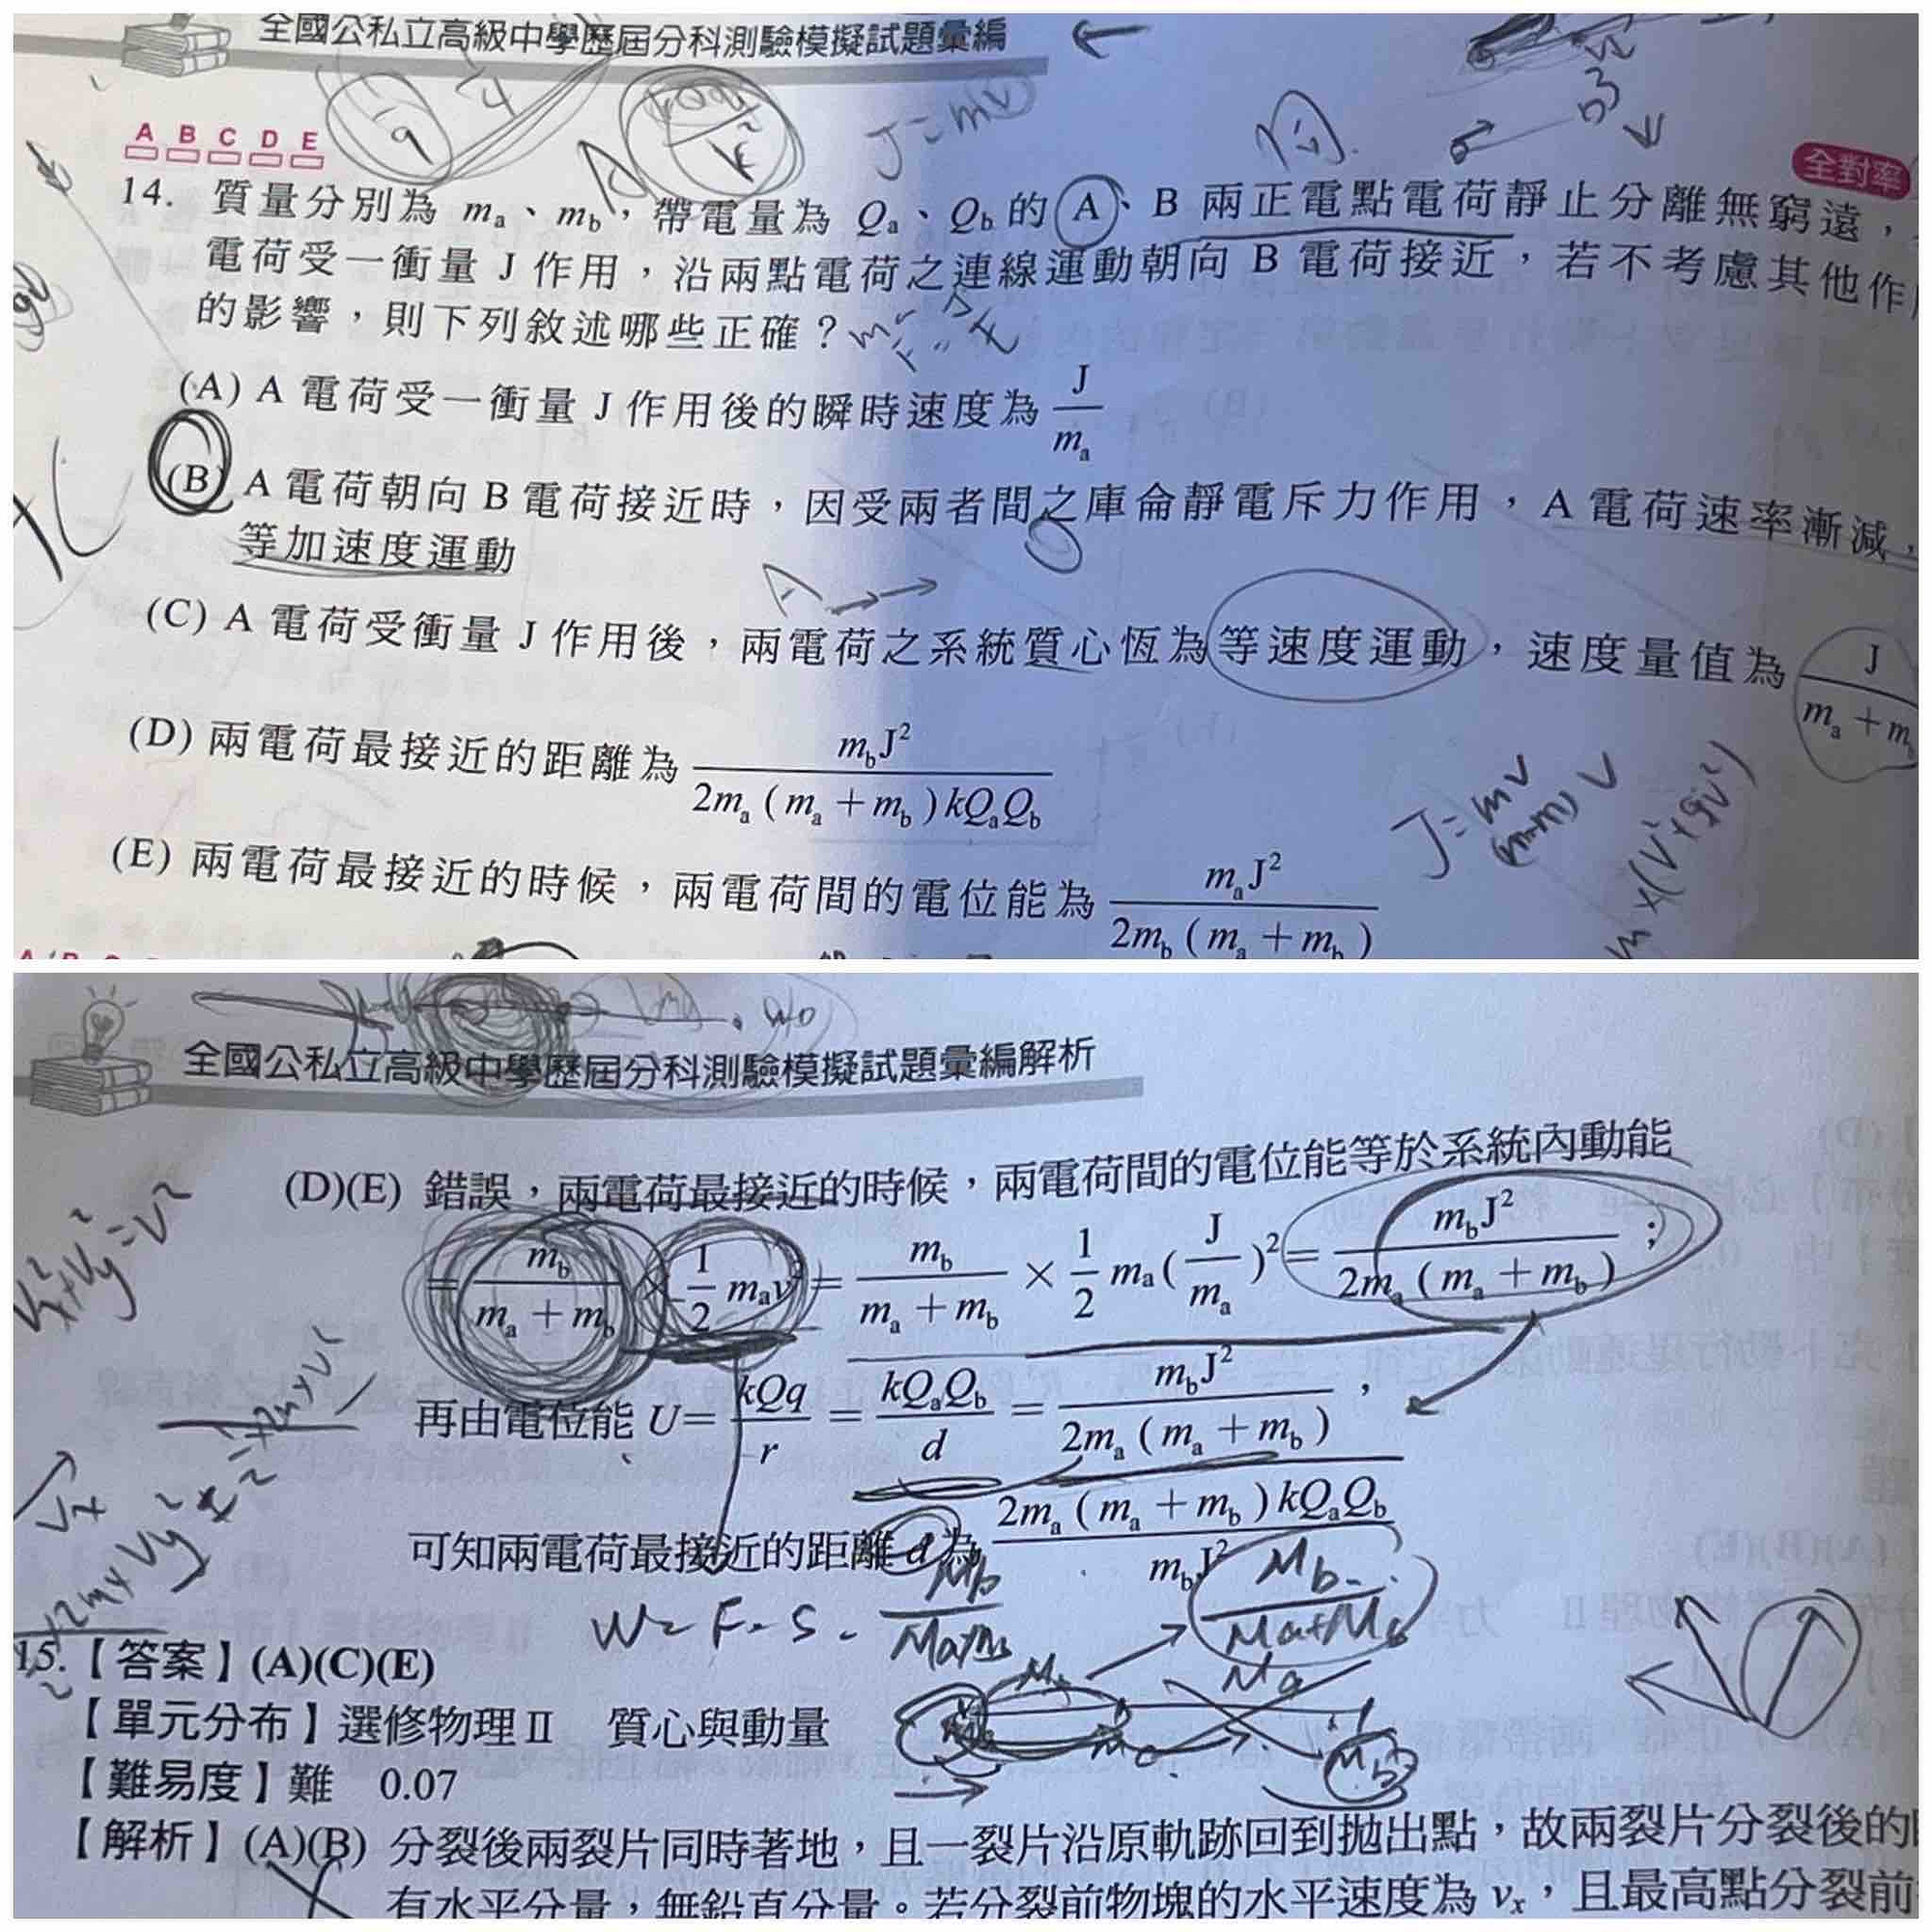 全國公私立高級中學歷屆分科測驗模擬試題彙編
A B C D E
全對率
14. 質量分別為 mₐ、m_b，帶電量為 Qₐ、Q_b 的 A、B 兩正電點電荷靜止分離無窮遠，
電荷受一衝量 J 作用，沿兩點電荷之連線運動朝向 B 電荷接近，若不考慮其他作
的影響，則下列敘述哪些正確？
(A) A 電荷受一衝量 J 作用後的瞬時速度為 J/mₐ
(B) A 電荷朝向 B 電荷接近時，因受兩者間之庫侖靜電斥力作用，A 電荷速率漸減，
等加速度運動
(C) A 電荷受衝量 J 作用後，兩電荷之系統質心恆為等速度運動，速度量值為 J/(mₐ + m
(D) 兩電荷最接近的距離為 m_bJ²/2mₐ(mₐ + m_b)kQₐQ_b
J=mv
(E) 兩電荷最接近的時候，兩電荷間的電位能為 mₐJ²/2m_b(mₐ + m_b)
全國公私立高級中學歷屆分科測驗模擬試題彙編解析
(D)(E) 錯誤，兩電荷最接近的時候，兩電荷間的電位能等於系統內動能
= m_b/(mₐ + m_b) × 1/2 mₐv² = m_b/(mₐ + m_b) × 1/2 mₐ(J/mₐ)² = m_bJ²/2mₐ(mₐ + m_b)；
再由電位能 U = kQq/r = kQₐQ_b/d = m_bJ²/2mₐ(mₐ + m_b)，
可知兩電荷最接近的距離 d 為 2mₐ(mₐ + m_b)kQₐQ_b/m_bJ²
W = F · S
15.【答案】(A)(C)(E)
【單元分布】選修物理Ⅱ 質心與動量
【難易度】難 0.07
【解析】(A)(B) 分裂後兩裂片同時著地，且一裂片沿原軌跡回到拋出點，故兩裂片分裂後的
有水平分量，無鉛直分量。若分裂前物塊的水平速度為 vₓ，且最高點分裂前